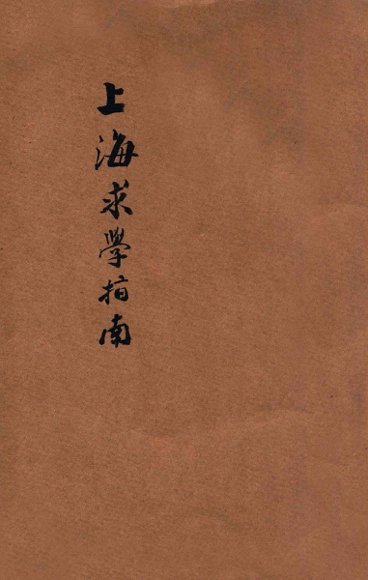 上海求學指南